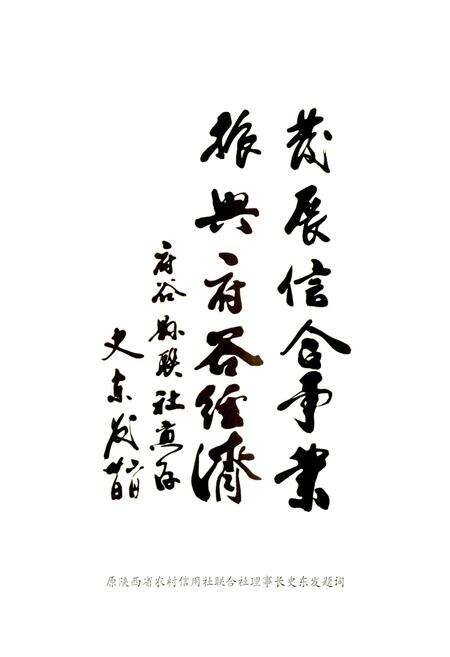 發展信合事業
振興府谷經濟
府谷縣联社惠存
史东发
原陕西省农村信用社联合社理事长史东发题词